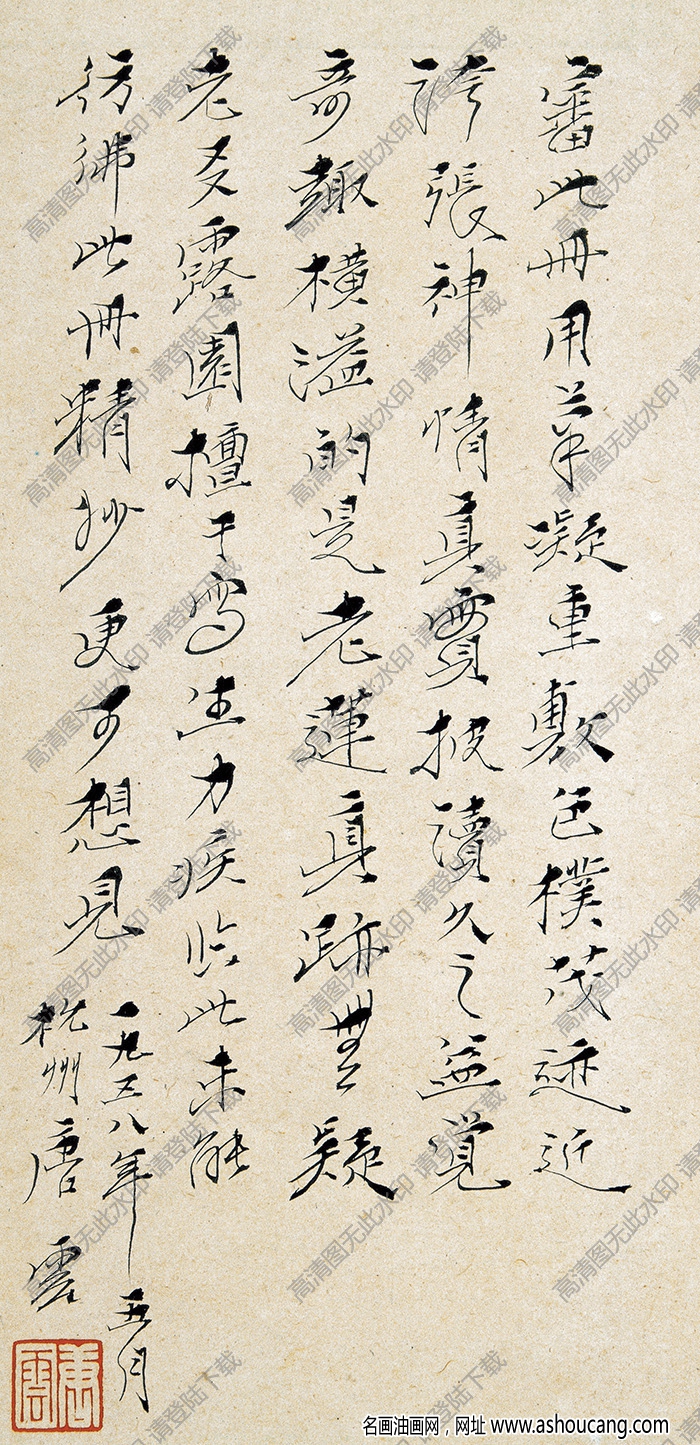 審此冊用筆凝重敷色樸茂迹近
誇張神情真實披讀久之益覺
奇趣橫溢的是老蓮真跡無疑
老友露園擅于寫生力疾臨此未能
彷彿此冊精妙更可想見
一九五八年五月
杭州唐雲
唐雲
高清图无此水印 请登陆下载
名画油画网，网址 www.ashoucang.com